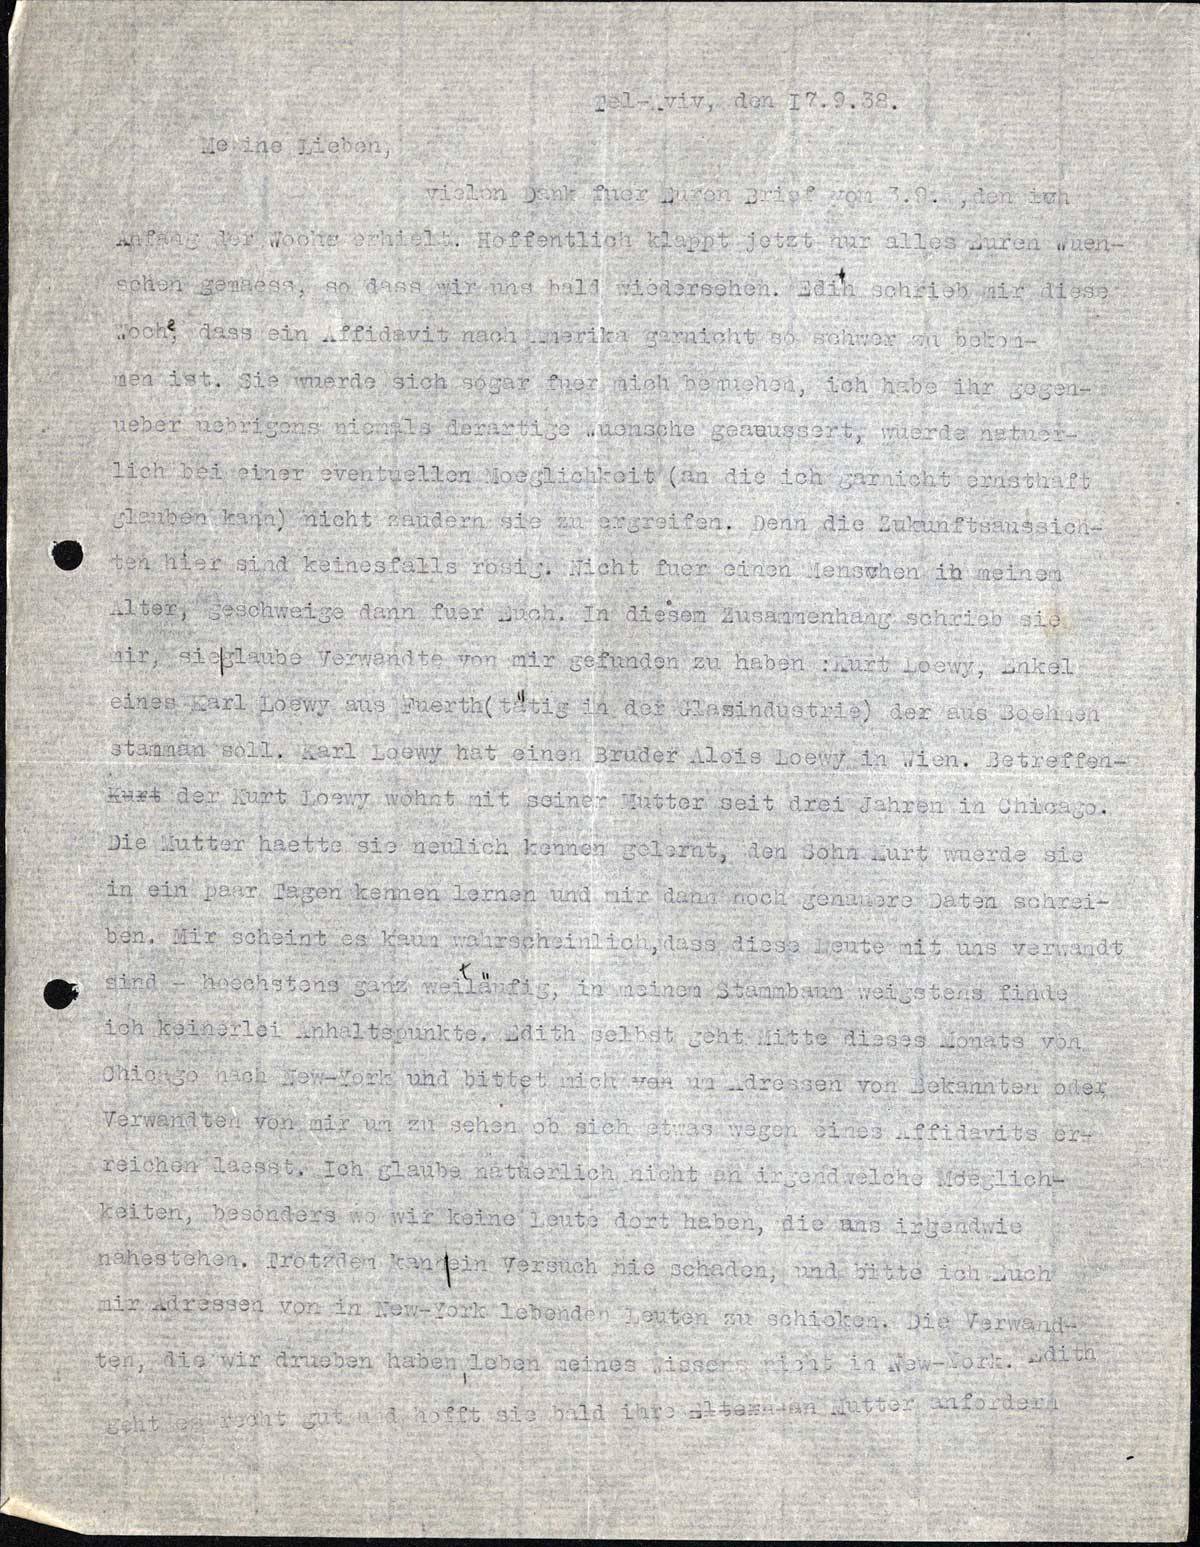 Tel-Aviv, den I7.9.38.
Meine Lieben,
vielen Dank fuer Euren Brief von 3.9. ,den ich
Anfang der Woche erhielt. Hoffentlich klappt jetzt nur alles Euren Wuen-
schen gemaess, so dass wir uns bald wiedersehen. Edith schrieb mir diese
Woche, dass ein Affidavit nach Amerika garnicht so schwer zu bekom-
men ist. Sie wuerde sich sogar fuer mich bemuehen, ich habe ihr gegen-
ueber uebrigens niemals derartige Wuensche geauussert, wuerde natuer-
lich bei einer eventuellen Moeglichkeit (an die ich garnicht ernsthaft
glauben kann) nicht zaudern sie zu ergreifen. Denn die Zukunftsaussich-
ten hier sind keinesfalls rosig. Nicht fuer einen Menschen in meinem
Alter, geschweige dann fuer Euch. In diesem Zusammenhang schrieb sie
mir, sie glaube Verwandte von mir gefunden zu haben :Kurt Loewy, Enkel
eines Karl Loewy aus Fuerth(tätig in der Glasindustrie) der aus Boehmen
stamman soll. Karl Loewy hat einen Bruder Alois Loewy in Wien. Betreffen-
kurt der Kurt Loewy wohnt mit seiner Mutter seit drei Jahren in Chicago.
Die Mutter haette sie neulich kennen gelernt, den Sohn Kurt wuerde sie
in ein paar Tagen kennen lernen und mir dann noch genauere Daten schrei-
ben. Mir scheint es kaum wahrscheinlich,dass diese Leute mit uns verwandt
sind - hoechstens ganz weitläufig, in meinem Stammbaum weigstens finde
ich keinerlei Anhaltspunkte. Edith selbst geht Mitte dieses Monats von
Chicago nach New-York und bittet mich von um Adressen von Bekannten oder
Verwandten von mir um zu sehen ob sich etwas wegen eines Affidavits er-
reichen laesst. Ich glaube natuerlich nicht an irgendwelche Moeglich-
keiten, besonders wo wir keine Leute dort haben, die uns irgendwie
nahestehen. Trotzdem kann ein Versuch nie schaden, und bitte ich Euch
mir Adressen von in New-York lebenden Leuten zu schicken. Die Verwand-
ten, die wir drueben haben, leben meines Wissens nicht in New-York. Edith
geht es recht gut und hofft sie bald ihre Eltern an Mutter anfordern